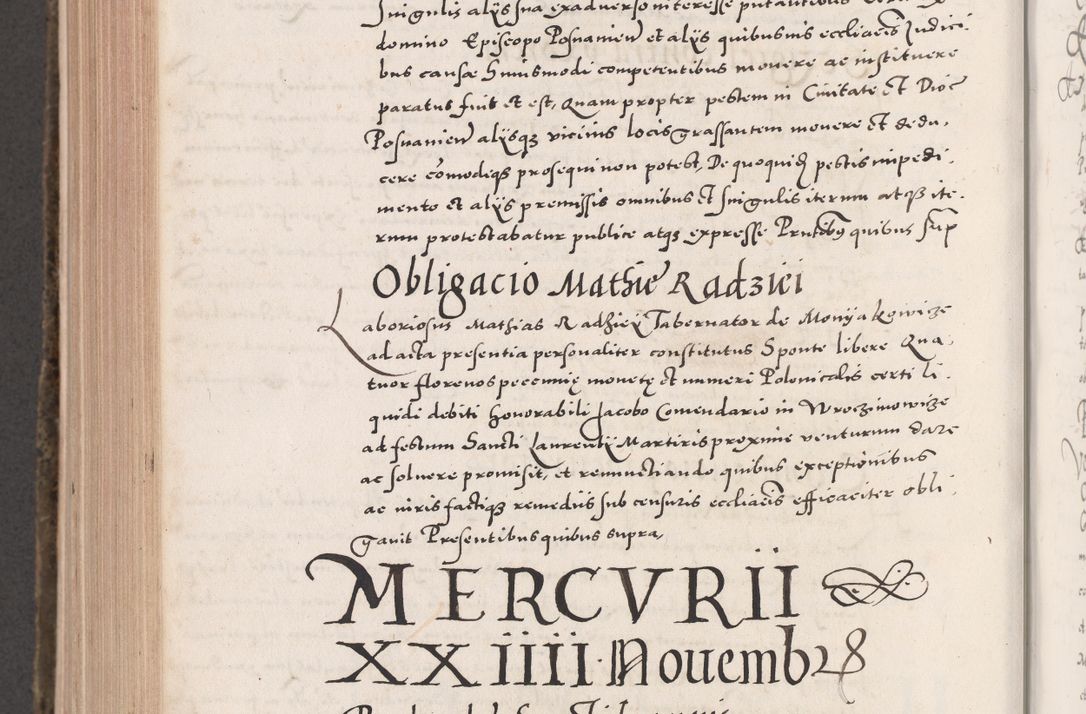 Singulis alijs sua exadverso interesse putantibus
domino Episcopo Posnanien et alijs quibusuis eccliacis Judici.
bus causae huiusmodi competentibus mouere ac instituere
paratus fuit et est, Quam propter pestem in Ciuitate et Dioc
Posnanien alijsq vicinis locis grassantem mouere et dedu.
cere comodeq prosequi non potest, De quoquid pestis impedi.
mento et alijs premissis omnibus et singulis iterum atq ite.
rum protestabatur publice atq expresse Pntibus quibus sup
Obligacio Mathie Radziei
Laboriosus Mathias Radziey Tabernator de Moniyakowicze
ad acta presentia personaliter constitutus Sponte libere Qua.
tuor florenos pecunnię monetę et numeri Polonicalis certi li.
quidi debiti honorabili Jacobo Comendario in Wroczimowicze
ad festum Sancti Laurentij Martiris proxime venturum dare
ac soluere promisit, et renunctiando quibus exceptionibus
ac iuris factiq remediis sub censuris eccliacis efficaciter obli.
gauit Presentibus quibus supra,
MERCVRII
XXIIII Nouembr